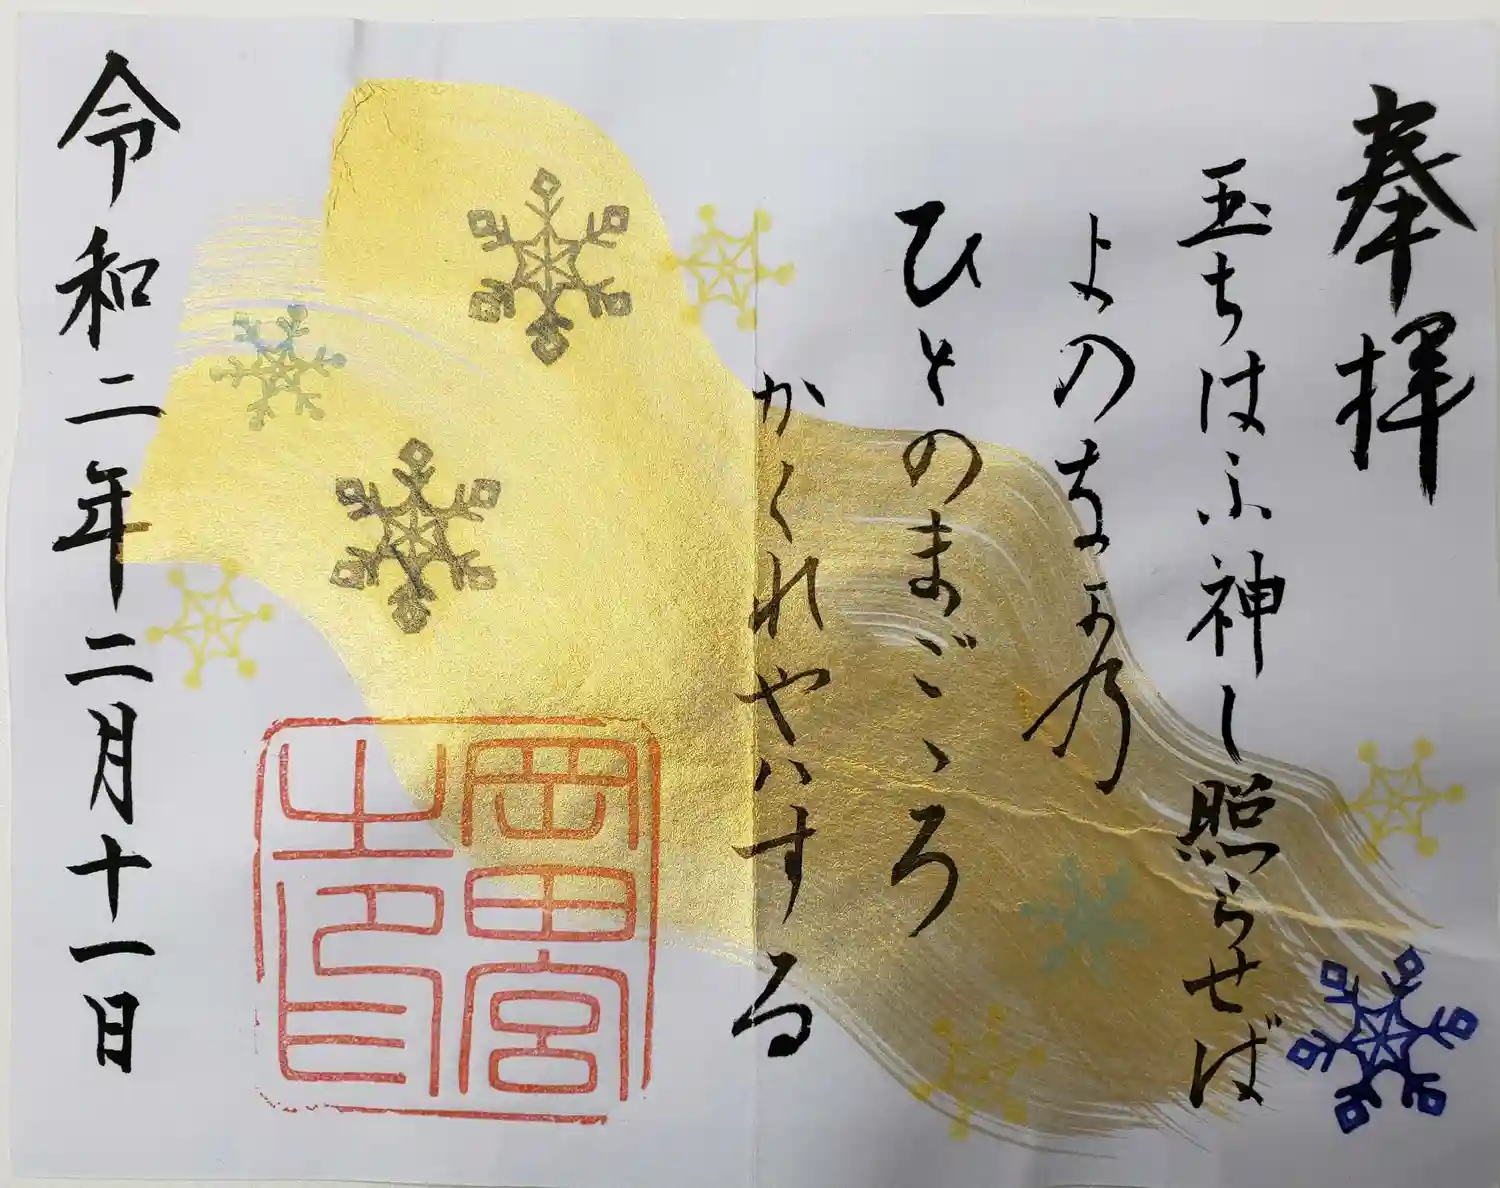 奉拝
玉ちはふ神し照らせば
よのな可乃
ひとのまごゝろ
かくれやハする
令和二年二月十一日
岡田宮
之印